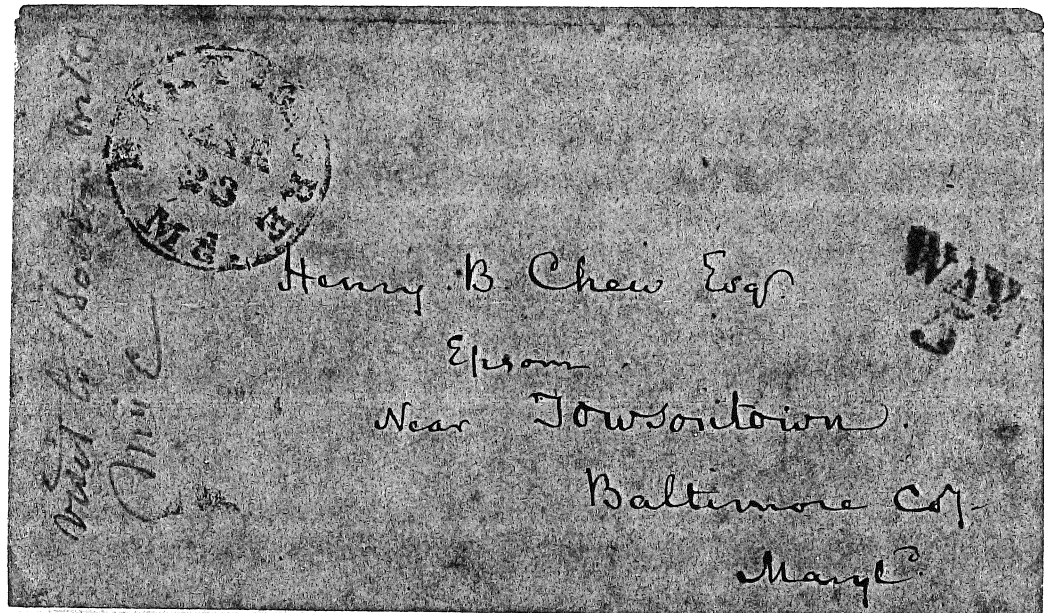 MAR
23
Md.
WAY
5
Henry B. Chew Esqr.
Epsom
Near Towsontown.
Baltimore Coy-
Maryld.
visit to